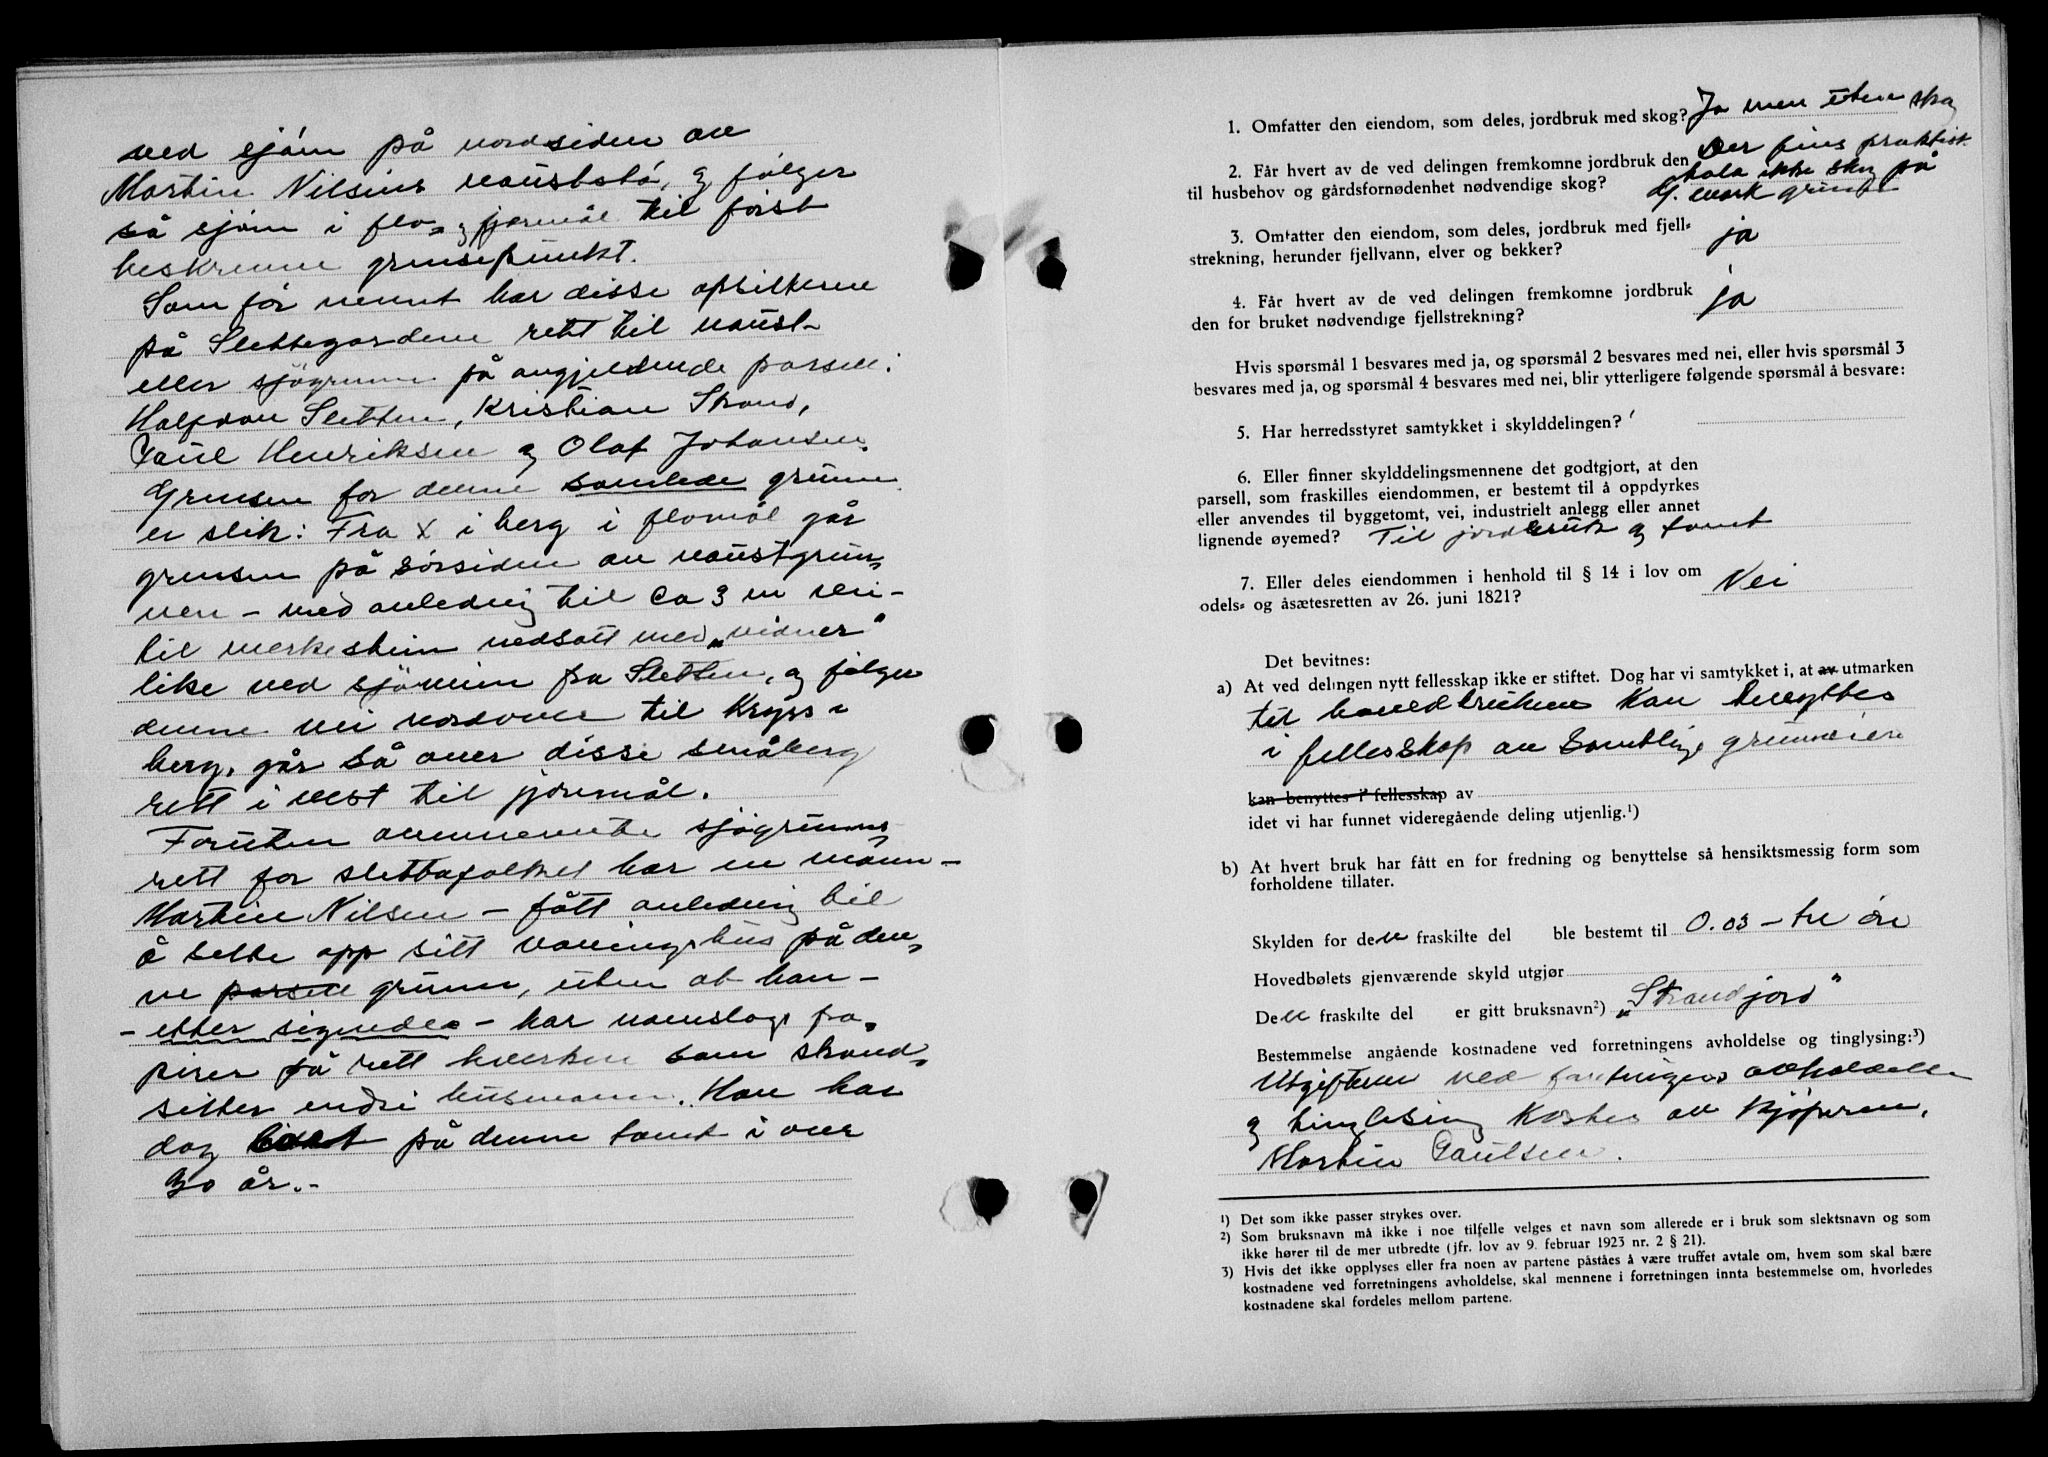 ved sjøen på nordsiden av
Martin Nilsens nauststø, og følger
så sjøen i flo- og fjæremål til først
beskrevne grensepunkt.
Som før nevnt har disse opsitterne
på Slettegardene rett til naust-
eller sjøgrunn på angjeldende parsell:
Halfdan Sletten, Kristian Strand,
Paul Henriksen og Olaf Johansen.
Grensen for denne samlede grunn
er slik: Fra X i berg i flomål går
grensen på sørsiden av naustgrun-
nen – med anledning til ca 3 m vei –
til merkestein nedsatt med „vidner"
like ved sjøveien fra Sletten, og følger
denne vei nordover til kryss i
berg, går så over disse småberg
rett i vest til fjæremål.
Foruten ovennevnte sjøgrunns-
rett for slettafolket har en mann –
Martin Nilsen – fått anledning til
å sette opp sitt våningshus på den-
ne parsell grunn, uten at han –
– etter sigende – har navnslags pa-
pirer på rett hverken som strand-
sitter eller husmann. Han har
dog bodt på denne tomt i over
30 år.-
1. Omfatter den eiendom, som deles, jordbruk med skog? Ja men uten skog
2. Får hvert av de ved delingen fremkomne jordbruk den Der fins praktisk
til husbehov og gårdsfornødenhet nødvendige skog? tala ikke skog på
G. mark grunn
3. Omfatter den eiendom, som deles, jordbruk med fjell- ja
strekning, herunder fjellvann, elver og bekker?
4. Får hvert av de ved delingen fremkomne jordbruk ja
den for bruket nødvendige fjellstrekning?
Hvis spørsmål 1 besvares med ja, og spørsmål 2 besvares med nei, eller hvis spørsmål 3
besvares med ja, og spørsmål 4 besvares med nei, blir ytterligere følgende spørsmål å besvare:
5. Har herredsstyret samtykket i skylddelingen?
6. Eller finner skylddelingsmennene det godtgjort, at den
parsell, som fraskilles eiendommen, er bestemt til å oppdyrkes
eller anvendes til byggetomt, vei, industrielt anlegg eller annet
lignende øyemed? Til jordbruk og tomt
7. Eller deles eiendommen i henhold til § 14 i lov om Nei
odels- og åsætesretten av 26. juni 1821?
Det bevitnes:
a) At ved delingen nytt fellesskap ikke er stiftet. Dog har vi samtykket i, at av utmarken
til hovedbruken kan benyttes
i fellesskap av samtlige grunneiere
kan benyttes i fellesskap av
idet vi har funnet videregående deling utjenlig.¹)
b) At hvert bruk har fått en for fredning og benyttelse så hensiktsmessig form som
forholdene tillater.
Skylden for den fraskilte del ble bestemt til 0.03 – tre øre
Hovedbølets gjenværende skyld utgjør
Den fraskilte del er gitt bruksnavn²) „Strandjord"
Bestemmelse angående kostnadene ved forretningens avholdelse og tinglysing:³)
Utgiftene ved forretningens avholdelse
og tinglysing kostes av kjøperen,
Martin Paulsen.
¹) Det som ikke passer strykes over.
²) Som bruksnavn må ikke i noe tilfelle velges et navn som allerede er i bruk som slektsnavn og som
ikke hører til de mer utbredte (jfr. lov av 9. februar 1923 nr. 2 § 21).
³) Hvis det ikke opplyses eller fra noen av partene påståes å være truffet avtale om, hvem som skal bære
kostnadene ved forretningens avholdelse, skal mennene i forretningen innta bestemmelse om, hvorledes
kostnadene skal fordeles mellom partene.